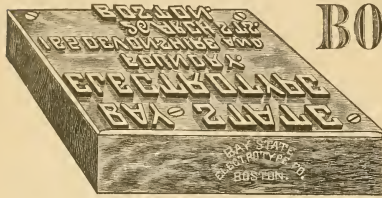 BAY STATE
ELECTROTYPE
FOUNDRY.
165 DEVONSHIRE AND
26 ARCH STS.
BOSTON.
BAY STATE
ELECTROTYPE CO.
BOSTON.
BO